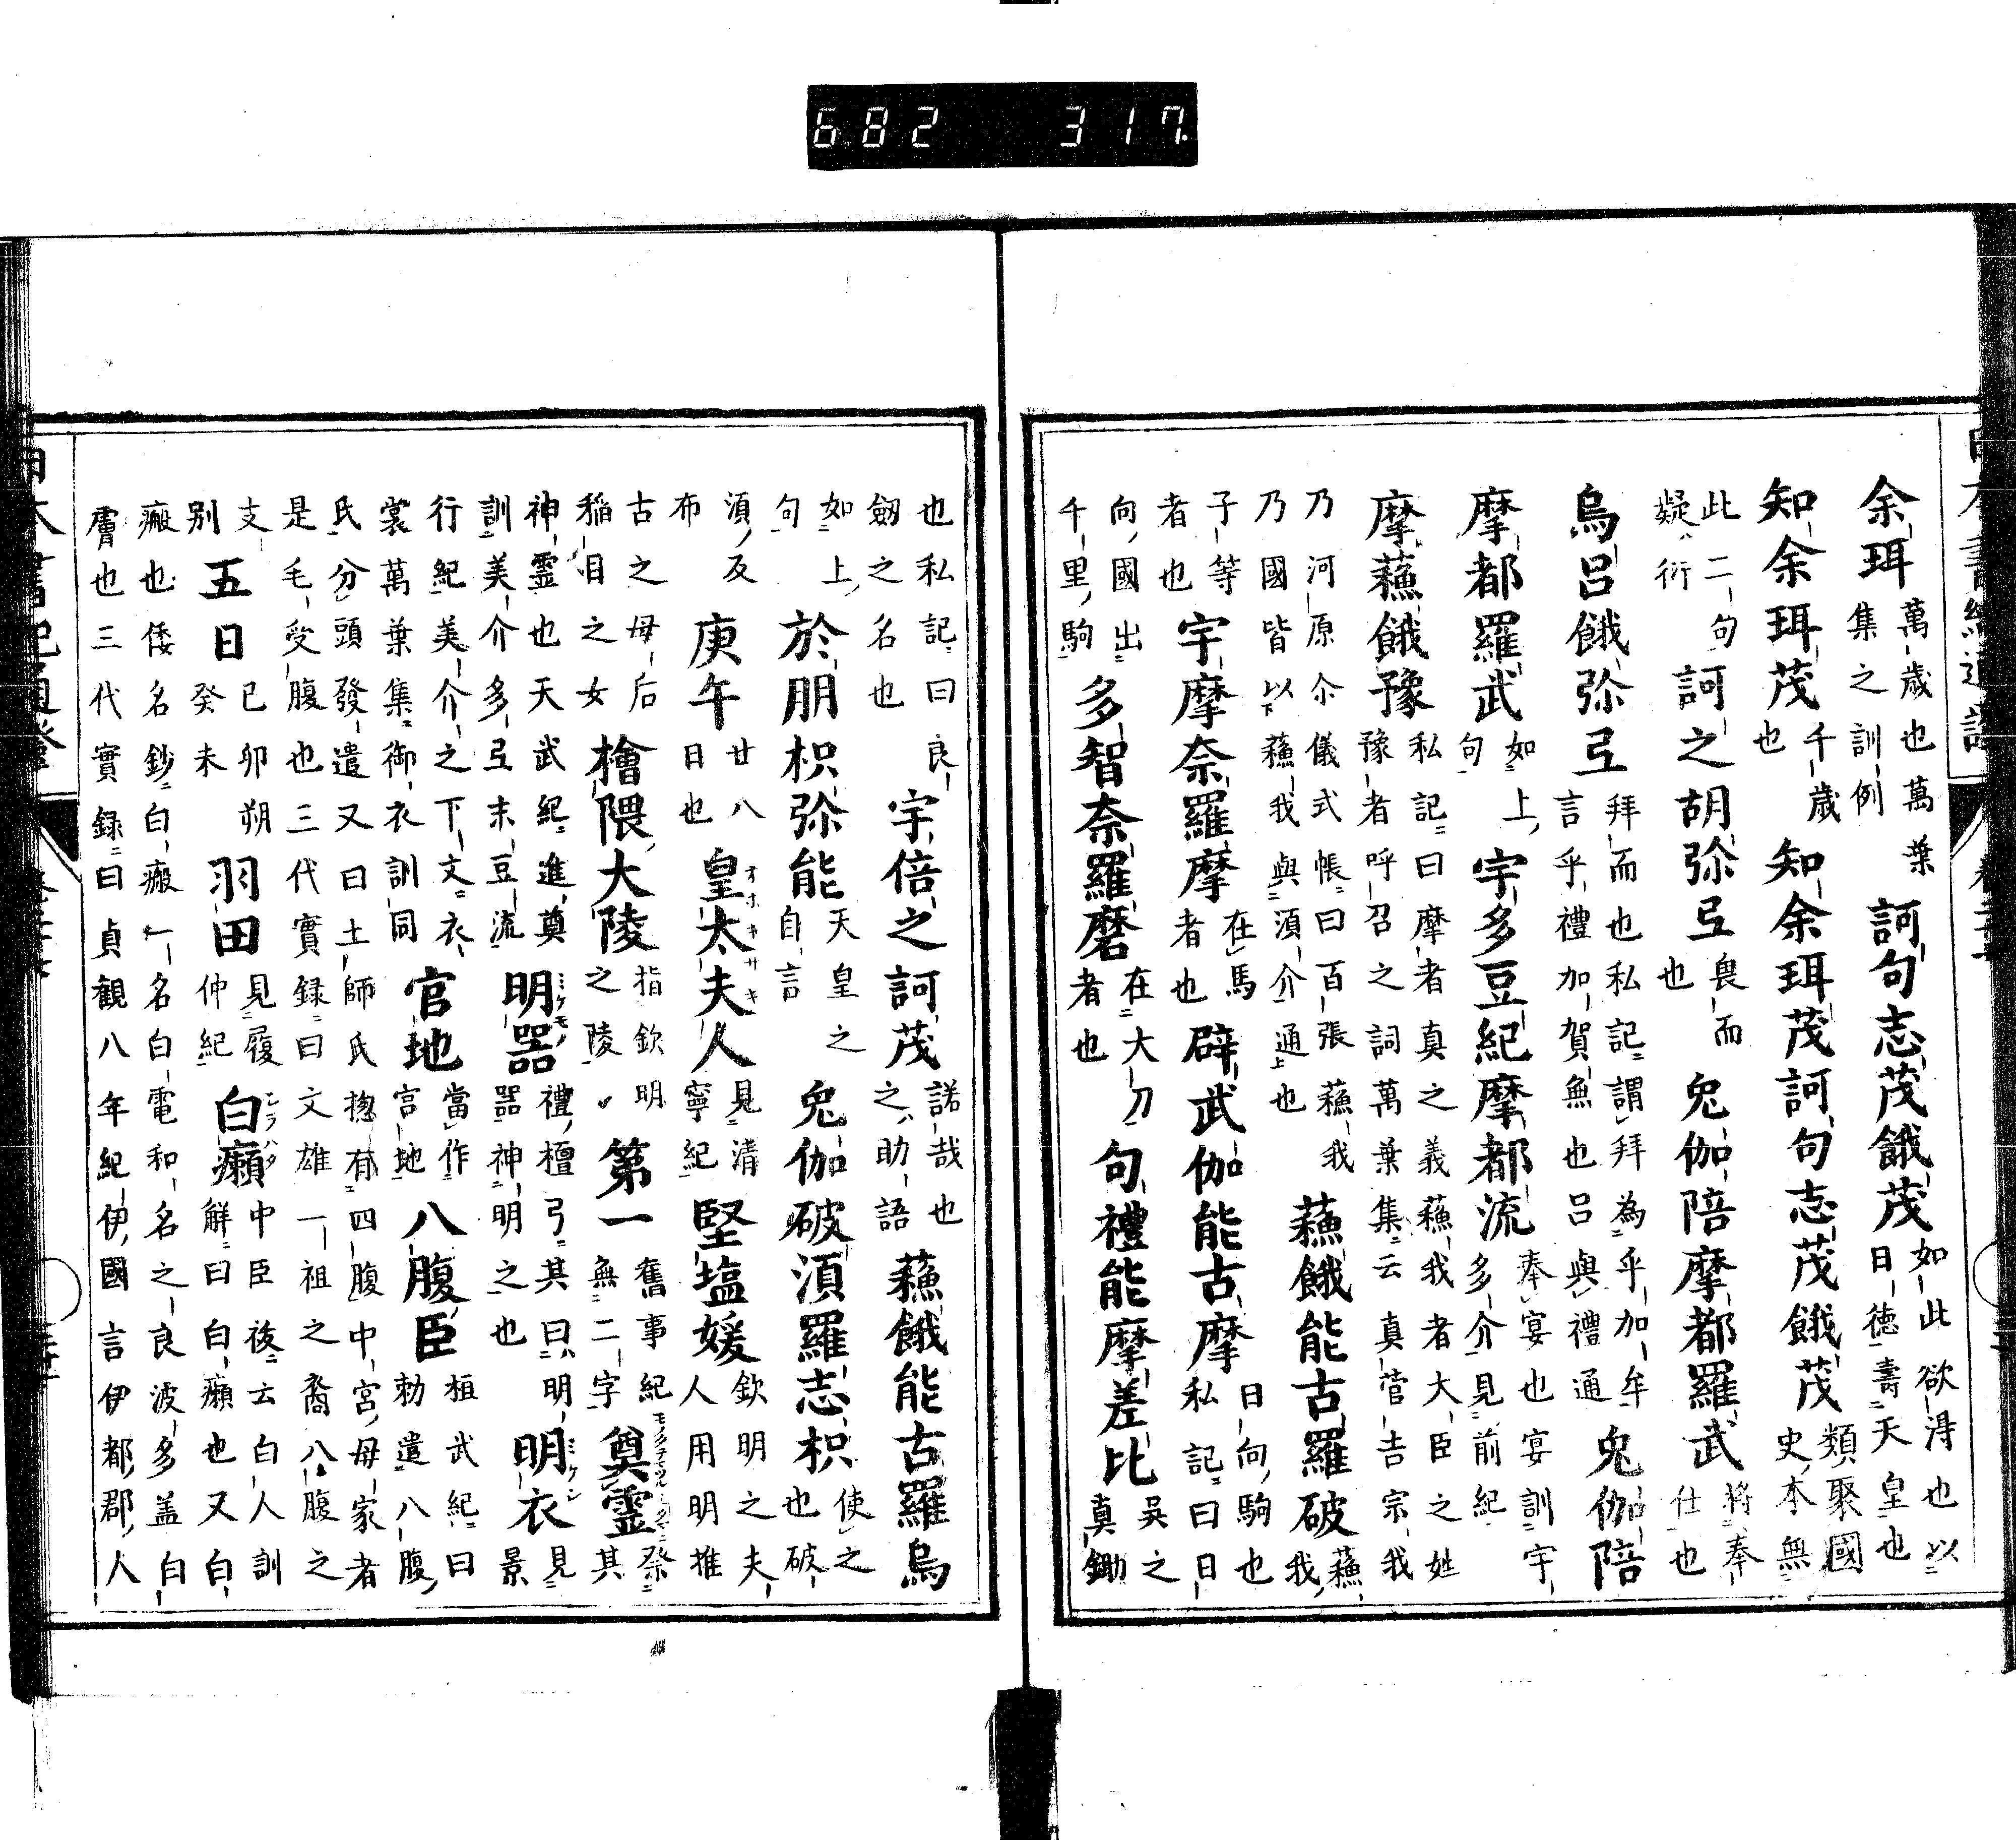 余珥萬歳也萬葉集之訓例訶句志茂餓茂如此欲淂也以日德壽天皇也
知余珥茂千歳也知余珥茂訶句志茂餓茂類聚國史本無
此二句疑衍訶之胡弥弖畏而也兔伽陪摩都羅武将奉仕也
烏呂餓弥弖拜而也私記謂拜為乎加牟言乎禮加賀無也呂與禮通兔伽陪
摩都羅武如上句宇多豆紀摩都流奉宴也宴訓宇多介見前紀
摩蘓餓豫私記曰摩者真之義蘓我者大臣之姓豫者呼召之詞萬葉集云真菅吉宗我
乃河原尒儀式帳曰百張蘓我乃國皆以下蘓我與湏介通上也蘓餓能古羅破蘓我
子等者也宇摩奈羅摩在馬者也辟武伽能古摩日向駒也私記曰日
向國出千里駒多智奈羅磨在大刀者也句禮能摩差比吳之真鋤
也私記曰良劔之名也宇倍之訶茂諾哉也之助語蘓餓能古羅烏
如上句於朋枳弥能天皇之自言兔伽破湏羅志枳使之也破
湏反布庚午廿八日也皇太夫人オホキサキ見清寧紀堅塩媛欽明之夫人用明推
古之母后稲目之女檜隈大陵指欽明之陵第一舊事紀無二字奠霊祭其
神霊也天武紀進奠訓美介多弖末豆流明器ミケモノ禮檀弓其曰明器神明之也明衣ミケシ見景
行紀美介之下文衣裳萬葉集御衣訓同官地當作宮地八腹臣桓武紀曰勅遣八腹
氏分頭發遣又曰土師氏惣有四腹中宮母家者是毛受腹也三代實録曰文雄一祖之裔八腹之
支别五日已卯朔癸未羽田見履仲紀白癩ヒラハタ中臣後云白人訓解曰白癩也又白
癜也倭名鈔白癜一名白電和名之良波多盖白膚也三代實録曰貞観八年紀伊國言伊都郡人
682 317